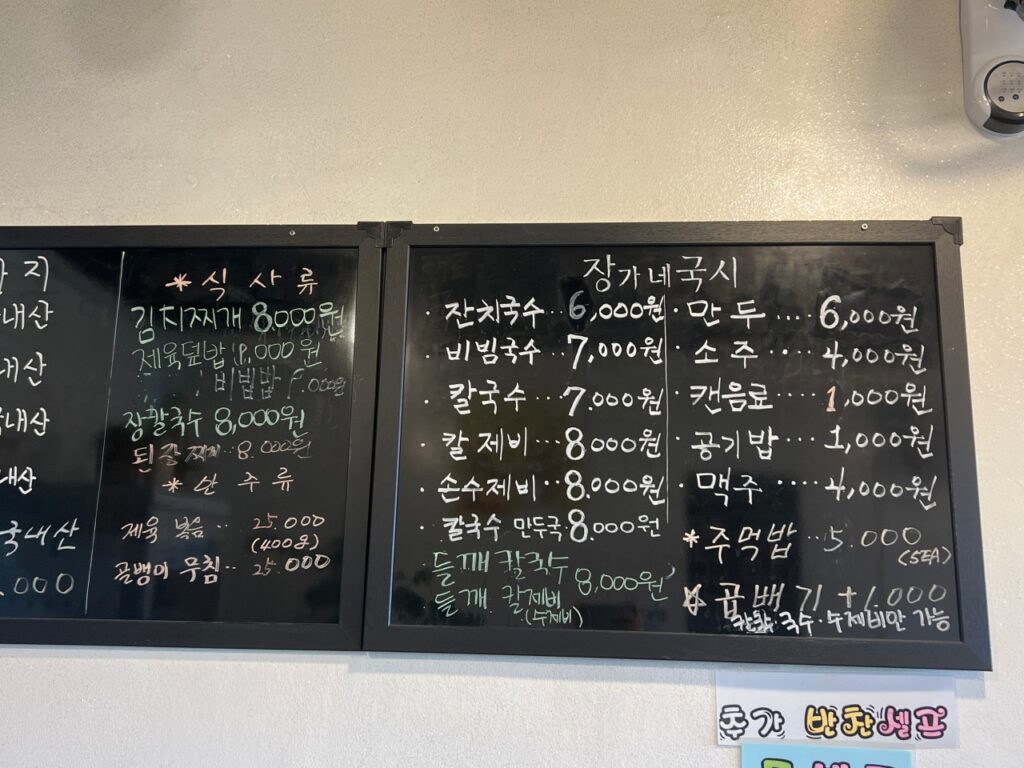 지
내산
내산
내산
내산
국내산
.000
* 식사류
김치찌개 8.000원
제육덮밥 000원
비빔밥 000원
장칼국수 8,000원
된장찌개 8.000원
* 안주류
제육 볶음 ·· 25.000
(400g)
골뱅이 무침 ·· 25.000
장가네국시
· 잔치국수 ·· 6,000원
· 비빔국수 ·· 7,000원
· 칼국수 ··· 7.000원
· 칼제비 ··· 8.000원
· 손수제비 ·· 8.000원
· 칼국수 만두국 · 8.000원
들깨 칼국수
들깨 칼제비 8,000원
(수제비)
· 만두 .... 6,000원
· 소주 .... 4,000원
· 캔음료 ... 1,000원
· 공기밥 ... 1,000원
· 맥주 .... 4,000원
* 주먹밥 ·· 5.000
(5EA)
☆ 곱배기 +1.000
국수·수제비만 가능
추가 반찬셀프